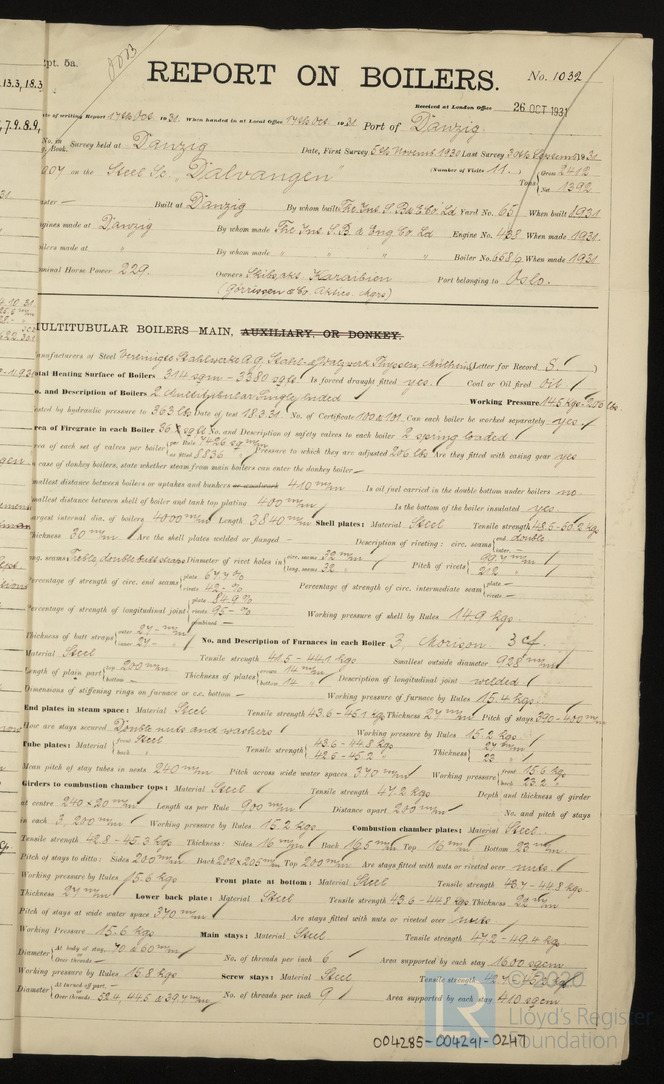 pt. 5a.
REPORT ON BOILERS.
No. 1032
Received at London Office 26 OCT 1931
te of writing Report 17th Oct. 1931 When handed in at Local Office 17th Oct. 1931 Port of Danzig
No. in Survey held at Danzig Date, First Survey 5th Novemb 1930 Last Survey 30th Septemb 1931
on the Steel Sc. "Dalvangen" (Number of Visits 11.) Tons Gross 2412
Net 1392
Built at Danzig By whom built The Int. S. B. & E. Co. Ld Yard No. 65 When built 1931
gines made at Danzig By whom made The Int. S. B. & Eng. Co. Ld Engine No. 428 When made 1931
oilers made at " By whom made " " " " Boiler No. 6586 When made 1931
ominal Horse Power 229. Owners Skibsakt. Karaibien Port belonging to Oslo.
(Gørrissen & Co. Akties. Mgrs)
MULTITUBULAR BOILERS MAIN, AUXILIARY, OR DONKEY.
anufacturers of Steel Vereinigte Stahlwerke A.G. Stahl- & Walzwerk Thyssen, Mülheim (Letter for Record S. )
otal Heating Surface of Boilers 314 sqm - 3380 sqft Is forced draught fitted yes. Coal or Oil fired oil
o. and Description of Boilers 2 Multitubular Singly ended Working Pressure 14.5 kgs. 206 lbs.
ested by hydraulic pressure to 363 lbs Date of test 18.3.31. No. of Certificate 100 & 101 Can each boiler be worked separately yes.
rea of Firegrate in each Boiler 36 sqft No. and Description of safety valves to each boiler 2 spring loaded
rea of each set of valves per boiler per Rule 7426 sq m/m
as fitted 8836 " Pressure to which they are adjusted 206 lbs Are they fitted with easing gear yes
case of donkey boilers, state whether steam from main boilers can enter the donkey boiler —
mallest distance between boilers or uptakes and bunkers or woodwork 410 m/m Is oil fuel carried in the double bottom under boilers no
mallest distance between shell of boiler and tank top plating 400 m/m Is the bottom of the boiler insulated yes.
argest internal dia. of boilers 4000 m/m Length 3840 m/m Shell plates: Material Steel Tensile strength 48.5-50.2 kgs
Thickness 30 m/m Are the shell plates welded or flanged — Description of riveting: circ. seams end double
inter. —
ng. seams Treble, double butt straps Diameter of rivet holes in circ. seams 32 m/m
long. seams 32 " Pitch of rivets 99.7 m/m
212 "
Percentage of strength of circ. end seams plate 67.7 %
rivets 42 - % Percentage of strength of circ. intermediate seam plate —
rivets —
Percentage of strength of longitudinal joint plate 84.9 %
rivets 95 - %
combined — Working pressure of shell by Rules 14.9 kgs.
Thickness of butt straps outer 27 - m/m
inner 27 - " No. and Description of Furnaces in each Boiler 3, Morison 3 cf.
Material Steel Tensile strength 41.5 - 44.1 kgs Smallest outside diameter 928 m/m
Length of plain part top 200 m/m
bottom — Thickness of plates crown 14 m/m
bottom 14 " Description of longitudinal joint welded
Dimensions of stiffening rings on furnace or c.c. bottom — Working pressure of furnace by Rules 15.4 kgs.
End plates in steam space: Material Steel Tensile strength 43.6 - 45.1 kgs Thickness 27 m/m Pitch of stays 390 - 400 m/m
How are stays secured Double nuts and washers Working pressure by Rules 15.2 kgs.
Tube plates: Material front Steel
back " Tensile strength 43.6 - 44.8 kgs
42.6 - 45.2 " Thickness 27 m/m
23 "
Mean pitch of stay tubes in nests 240 m/m Pitch across wide water spaces 370 m/m Working pressure front 15.6 kgs
back 23.2 "
Girders to combustion chamber tops: Material Steel Tensile strength 47.2 kgs Depth and thickness of girder
at centre 240 x 20 m/m Length as per Rule 900 m/m Distance apart 200 m/m No. and pitch of stays
in each 3, 200 m/m Working pressure by Rules 15.2 kgs Combustion chamber plates: Material Steel.
Tensile strength 42.8 - 45.3 kgs Thickness: Sides 16 m/m Back 16.5 m/m Top 16 m/m Bottom 23 m/m
Pitch of stays to ditto: Sides 200 m/m Back 200 x 205 m/m Top 200 m/m Are stays fitted with nuts or riveted over nuts.
Working pressure by Rules 15.6 kgs Front plate at bottom: Material Steel Tensile strength 43.7 - 44.8 kgs
Thickness 27 m/m Lower back plate: Material Steel Tensile strength 43.6 - 44.8 kgs Thickness 22 m/m
Pitch of stays at wide water space 370 m/m Are stays fitted with nuts or riveted over nuts
Working Pressure 15.6 kgs Main stays: Material Steel Tensile strength 47.2 - 49.4 kgs
Diameter At body of stay, 70 & 60 m/m
Over threads — No. of threads per inch 6 Area supported by each stay 1600 sqcm
Working pressure by Rules 15.8 kgs Screw stays: Material Steel Tensile strength
Diameter At turned off part, —
Over threads 52.4, 44.5 & 39.7 m/m No. of threads per inch 9 Area supported by each stay 410 sqcm
© 2020
LR
Lloyd's Register
Foundation
004285-004291-0247